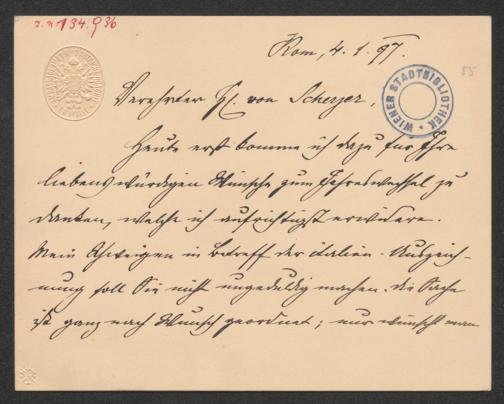 I. N. 134.936
Rom, 4. 1. 97.
55
WIENER STADTBIBLIOTHEK
Verehrter H. von Scherzer,
Heute erst komme ich dazu für Ihre
liebenswürdigen Wünsche zum Jahreswechsel zu
danken, welche ich aufrichtigst erwidere.
Mein Schweigen in Betreff der italien. Auszeich-
nung soll Sie nicht ungeduldig machen. Die Sache
ist ganz nach Wunsch geordnet; nur wünscht man